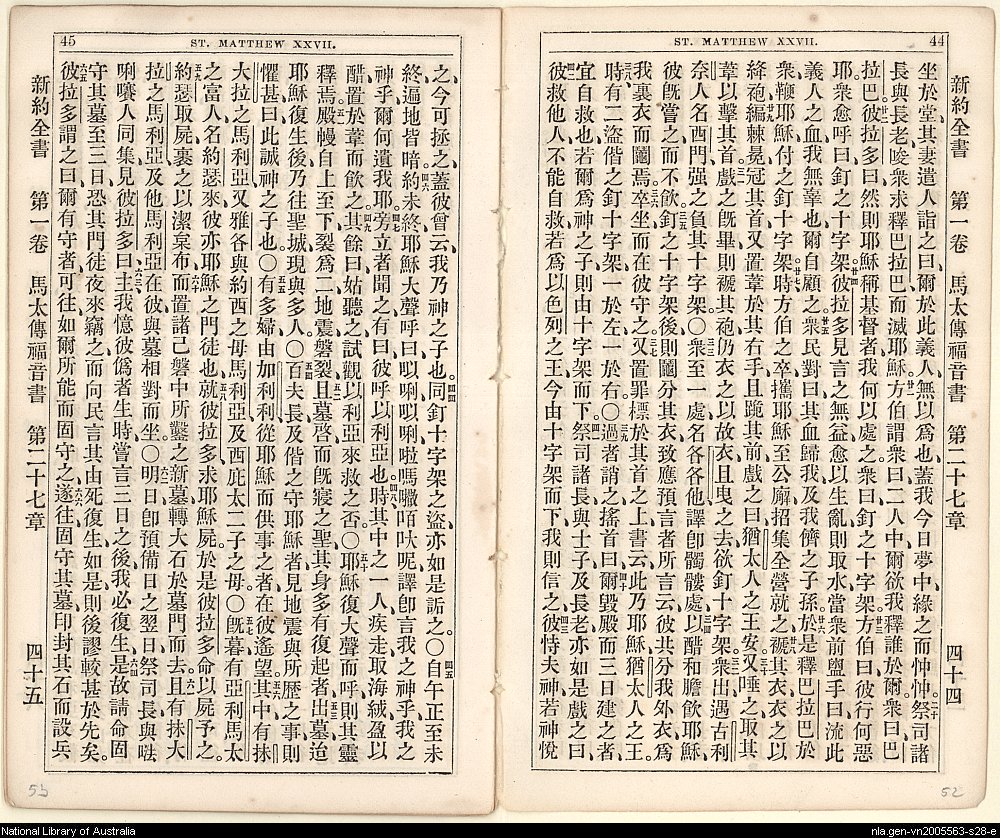 ST. MATTHEW XXVII.
44
新約全書 第一卷 馬太傳福音書 第二十七章 四十四
坐於堂、其妻遣人詣之曰、爾於此義人無以爲也、蓋我今日夢中緣之而忡忡。二十祭司諸
長與長老、唆衆求釋巴拉巴、而滅耶穌。廿一方伯謂衆曰、二人中爾欲我釋誰於爾、衆曰巴
拉巴。廿二彼拉多曰、然則耶穌稱基督者、我何以處之、衆曰、釘之十字架。廿三方伯曰、彼行何惡
耶、衆愈呼曰、釘之十字架。廿四彼拉多見言之無益、愈以生亂、則取水當衆前盥手曰、流此
義人之血、我無辜也、爾自顧之。廿五衆民對曰、其血歸我、及我儕之子孫。廿六於是釋巴拉巴於
衆、鞭耶穌、付之釘十字架。廿七時方伯之卒、攜耶穌至公廨、招集全營就之。廿八褫其衣、衣之以
絳袍。廿九編棘冕冠其首、又置葦於其右手、且跪其前戲之曰、猶太人之王安。三十又唾之、取其
葦以擊其首。三一戲之旣畢、則褫其袍、仍衣之以故衣、且曳之去、欲釘十字架。三二衆出、遇古利
奈人名西門、强之負其十字架。〇三三衆至一處、名各各他、譯卽髑髏處。三四以醋和膽飲耶穌、
彼旣嘗之而不飲。三五釘之十字架後、則鬮分其衣、致應預言者所言云、彼共分我外衣、爲
我裏衣而鬮焉。三六卒坐而在彼守之。三七又置罪標於其首之上、書云、此乃耶穌猶太人之王。
三八時有二盜偕之釘十字架、一於左、一於右。〇三九過者誚之、搖首曰、四十爾毀殿而三日建之者、
宜自救也、若爾爲神之子、則由十字架而下。四一祭司諸長與士子及長老、亦如是戲之曰、
四二彼救他人、不能自救、若爲以色列之王、今由十字架而下、我則信之。四三彼恃夫神、若神悅
ST. MATTHEW XXVII.
45
之、今可拯之、蓋彼曾云、我乃神之子也。四四同釘十字架之盜、亦如是詬之。〇四五自午正至未
終、遍地皆暗。四六約未終、耶穌大聲呼曰、以唎以唎啦嗎㘔咟吠呢、譯卽言、我之神乎、我之
神乎、爾何遺我耶。四七旁立者聞之、有曰、彼呼以利亞也。四八時其中之一人疾走、取海絨盈以
醋、置於葦而飲之。四九其餘曰、姑聽之、試觀以利亞來救之否。〇五十耶穌復大聲而呼、則其靈
釋焉。五一殿幔自上至下裂爲二、地震磐裂。五二且墓啓、而旣寢之聖、其身多有復起者。五三出墓、迨
耶穌復生後、乃往聖城、現與多人。〇五四百夫長及偕之守耶穌者、見地震與所歷之事、則
懼甚、曰、此誠神之子也。〇五五有多婦由加利利從耶穌而供事之者、在彼遙望。五六其中有抹
大拉之馬利亞、又雅各與約西之母馬利亞、及西庇太二子之母。〇五七旣暮、有亞利馬太
之富人、名約瑟來、彼亦耶穌之門徒也。五八就彼拉多求耶穌屍、於是彼拉多命以屍予之。
五九約瑟取屍、裹之以潔枲布。六十而置諸己磐中所鑿之新墓、轉大石於墓門而去。六一且有抹大
拉之馬利亞、及他馬利亞、在彼與墓相對而坐。〇六二明日、卽預備日之翌日、祭司長與𠵽
唎㘔人同集見彼拉多曰、六三主、我憶彼僞者生時嘗言、三日之後、我必復生。六四是故請命固
守其墓至三日、恐其門徒夜來竊之、而向民言、其由死復生、如是則後謬較甚於先矣。
六五彼拉多謂之曰、爾有守者、可往如爾所能而固守之。六六遂往固守其墓、印封其石而設兵
新約全書 第一卷 馬太傳福音書 第二十七章 四十五
53
52
National Library of Australia
nla.gen-vn2005563-s28-e